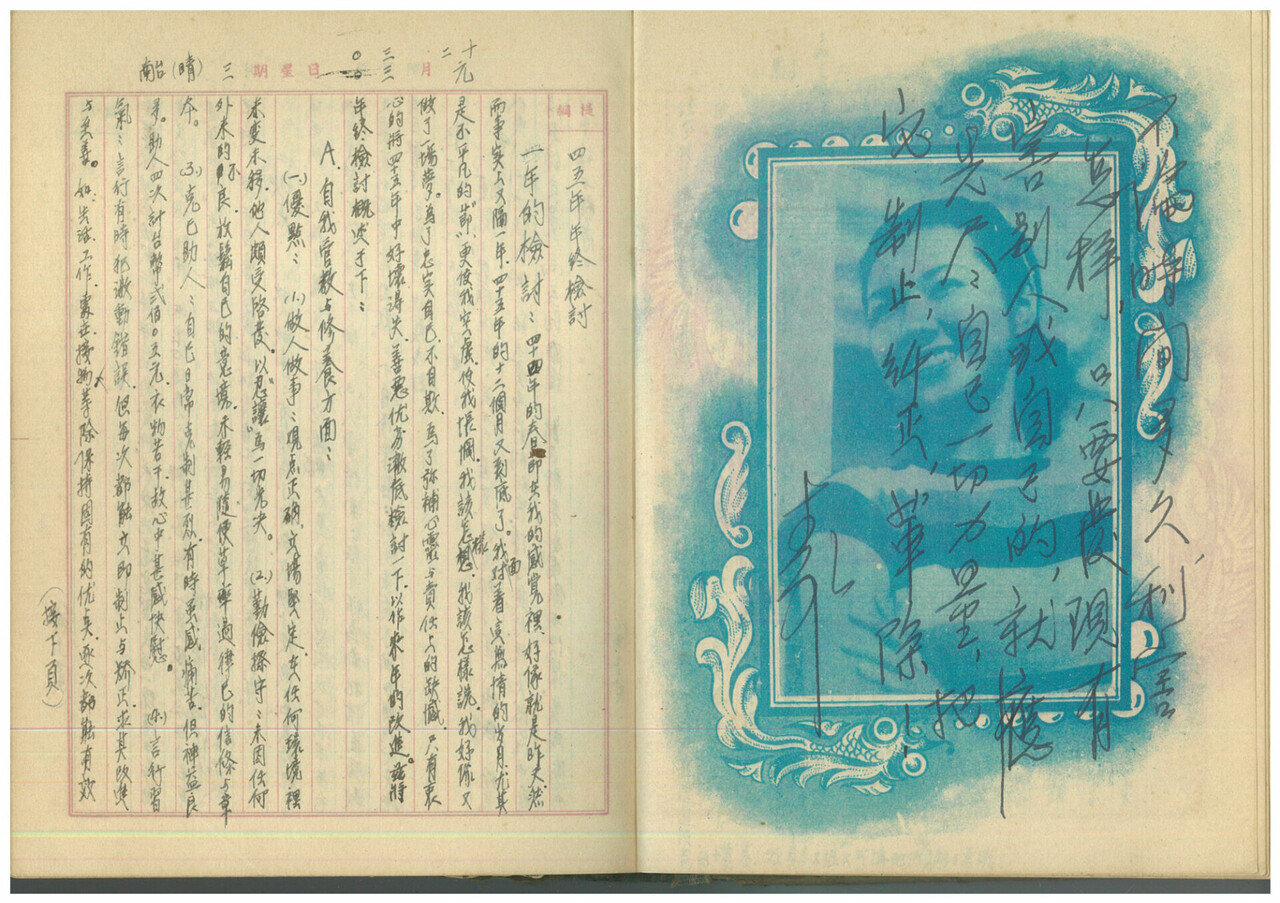 不論時間多久，利害
怎樣，只要發現有
害別人或自己的，就應
儘自己一切力量，把
它制止，糾正，革除！
欄編
四五年年終檢討
一年的檢討：四十四年的春節在我的感覺裡，好像就是昨天。然
而事實上又隔一年，四十五年的十二個月又到底了。我面對着這無情的歲月，尤其
是不平凡的此節，更使我空虛，使我悵惘，我該怎樣想，我該怎樣說，我好像又
做了一場夢。為了忠實自己，不自欺，為了弥補心靈与責任上的缺憾，只有衷
心的將四十五年中好壞得失、善惡优劣澈底檢討一下，以作來年的改進。茲將
年終檢討概述于下：
A. 自我管教与修養方面：
(一)優點：(1.)做人做事：观点正确，立場堅定，在任何環境裡
未变未移，他人頗受啓發。以“忍讓”為一切先决。(2.)勤儉操守：未因任何
外來的不良，放鬆自己的意志，未輕易隨便草率過律己的信條与章
本。(3.)克己助人：自己日常克制甚烈，有時虽感痛苦，但神益良
多。助人四次計台幣弍佰〇五元，衣物若干，故心中甚感快慰。(4.)言行習
氣：言行有時犯激動錯誤，但每次都能立即制止与矯正，求其改進
与至善。如生活、工作、處世、接物等，除保持固有的优点，逐次都能有效
(接下頁)
十二月
元
三三
日
星期三
(晴)
南台